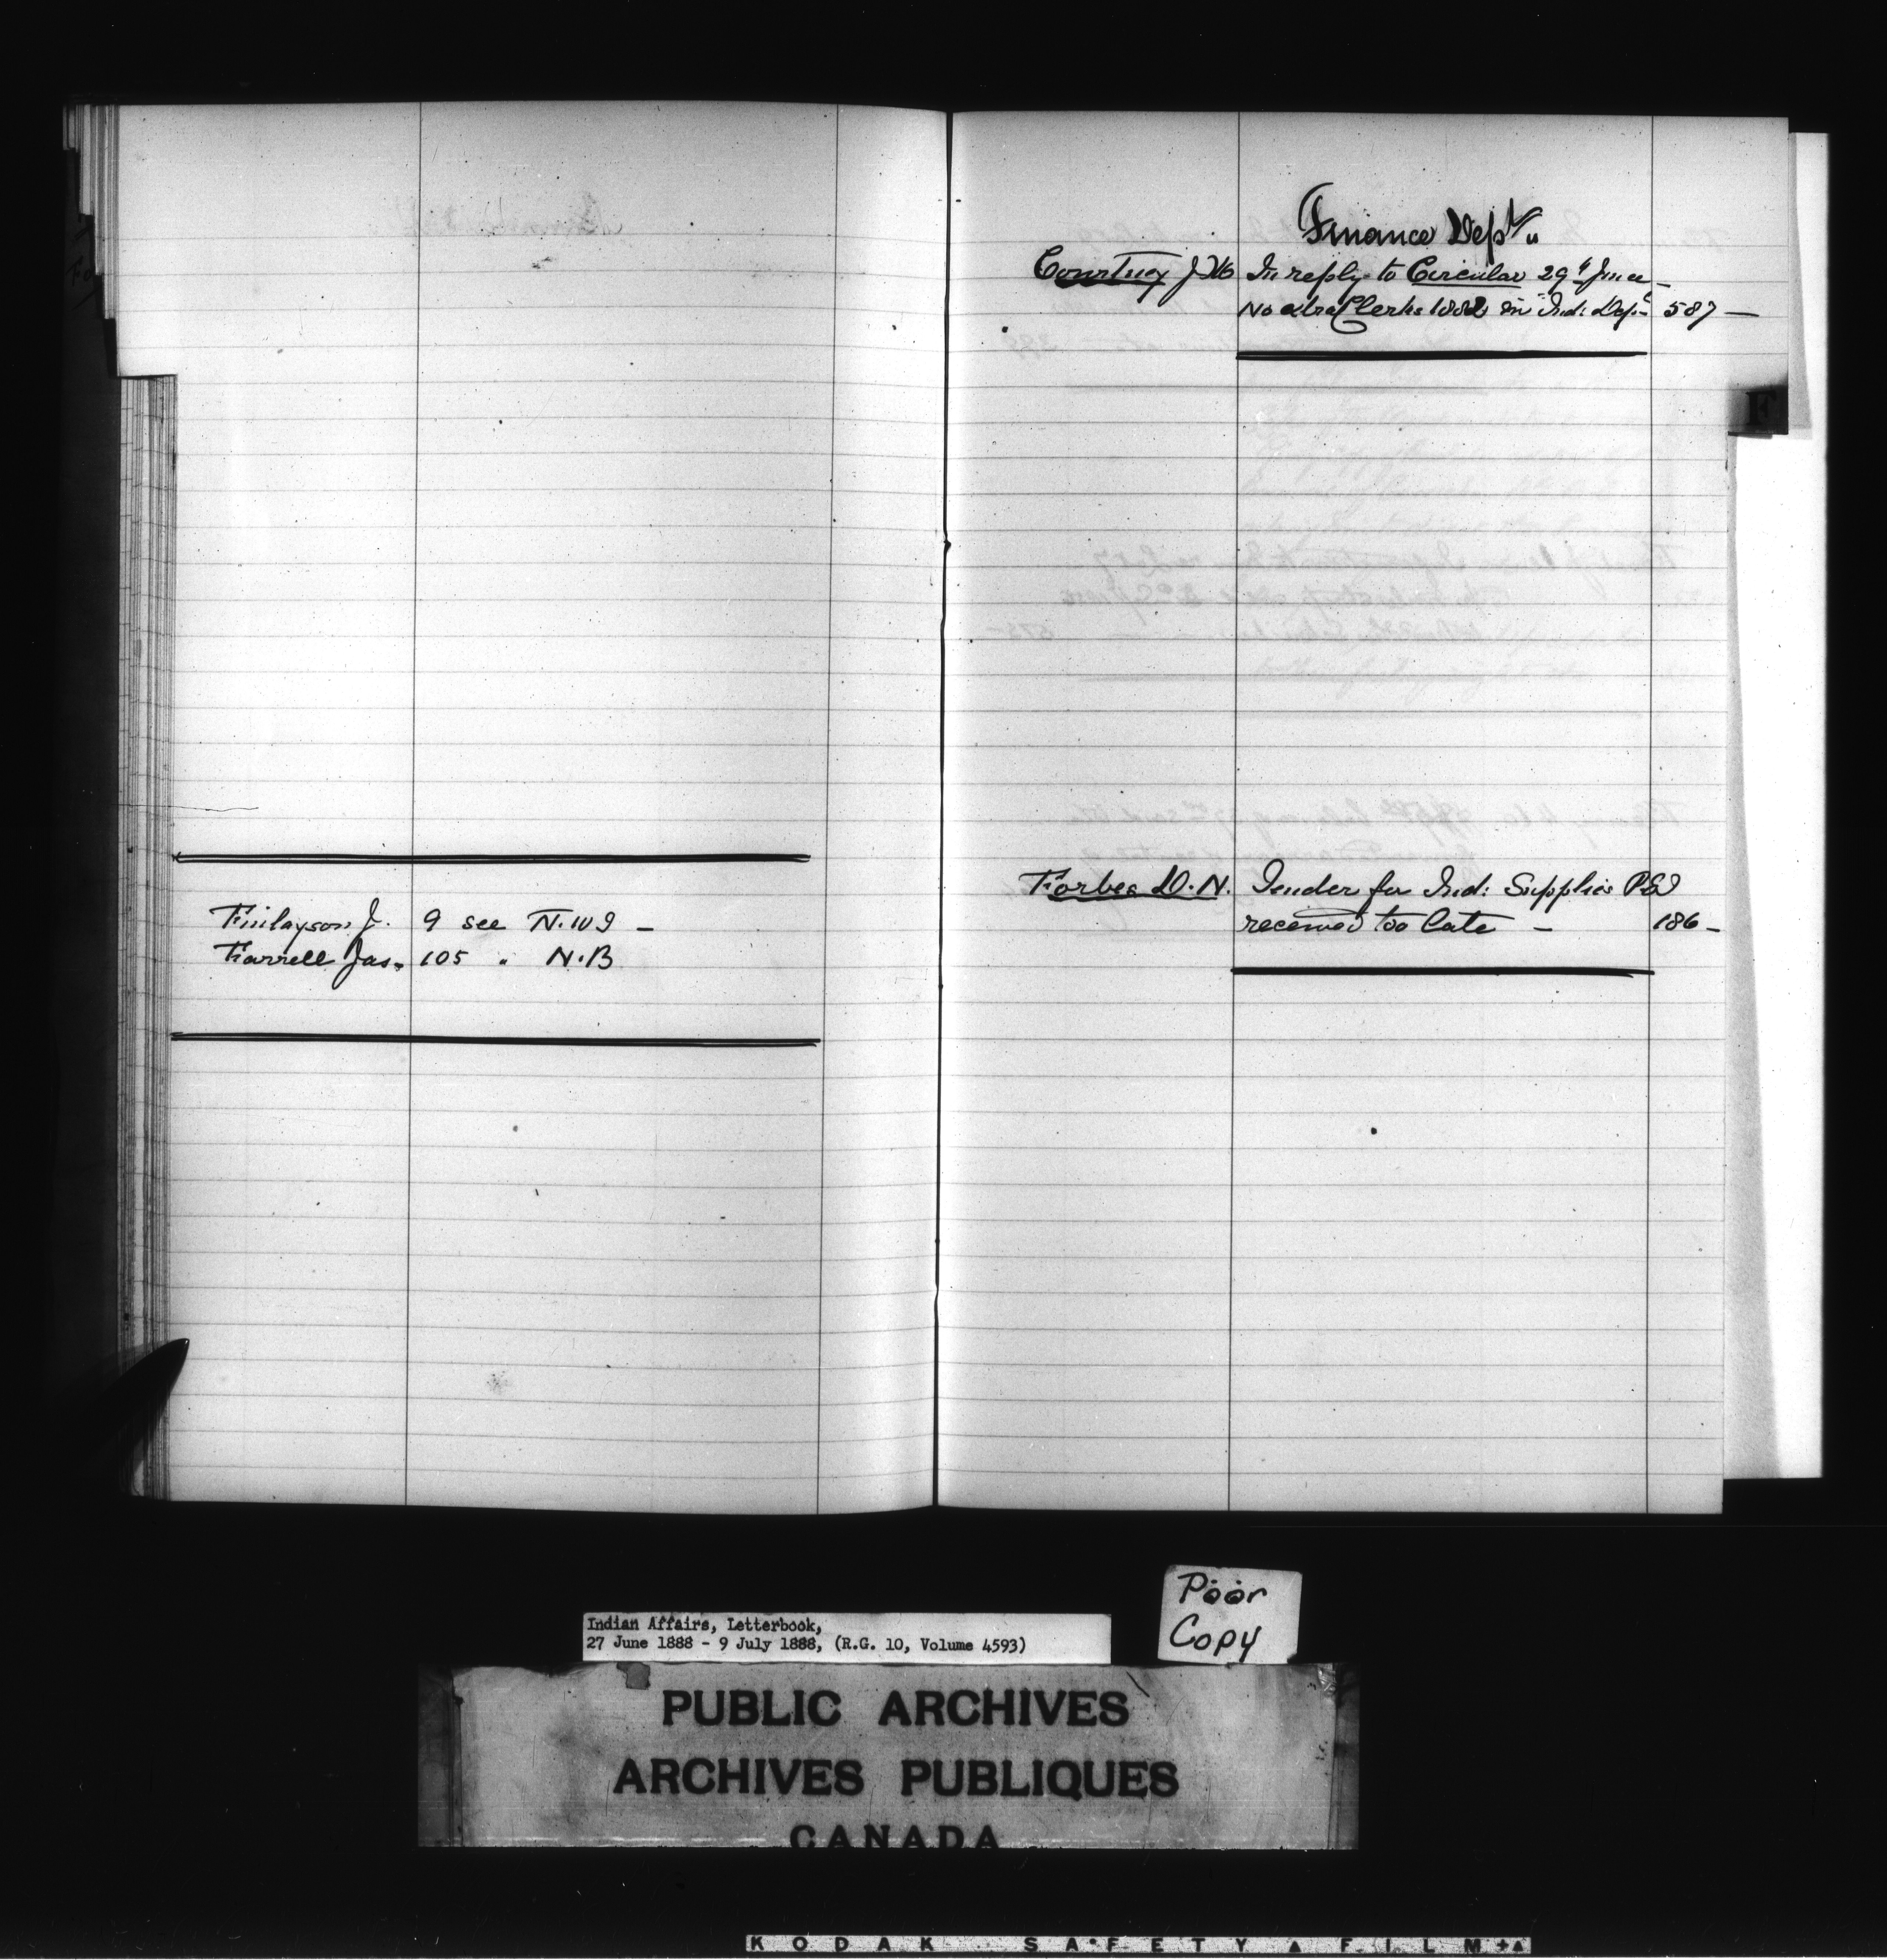 Finlayson J. 9 see N.W9 –
Farrell Jas. 105 " N.B
Finance Dept
Courtney J M In reply to Circular 29th June –
No extra Clerks 1882 in Ind: Dept 587 –
F
Forbes D.N. Tender for Ind: Supplies
received too late – 186 –
Poor
Copy
Indian Affairs, Letterbook,
27 June 1888 - 9 July 1888, (R.G. 10, Volume 4593)
PUBLIC ARCHIVES
ARCHIVES PUBLIQUES
CANADA
KODAK SAFETY FILM